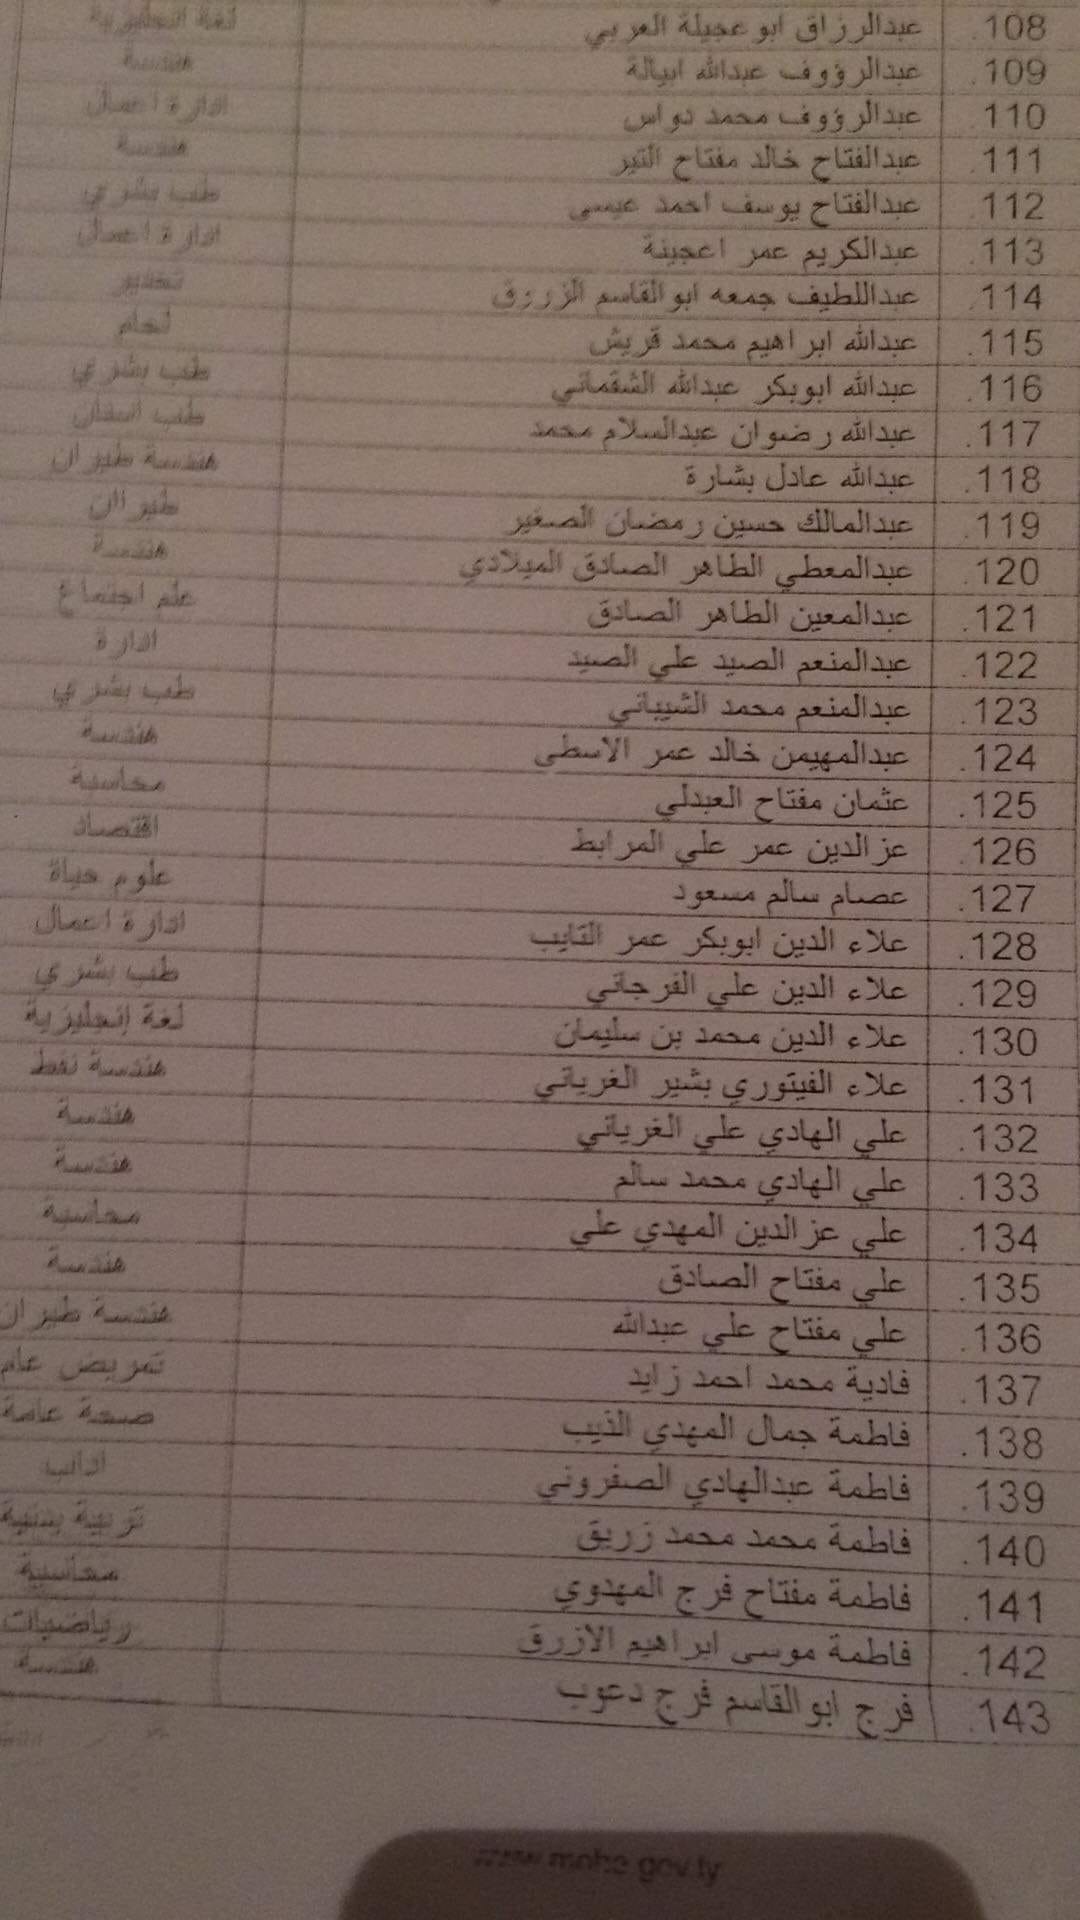 108. عبدالرزاق ابو عجيلة العربي لغة انجليزية
109. عبدالرؤوف عبدالله ابيالة هندسة
110. عبدالرؤوف محمد دواس ادارة اعمال
111. عبدالفتاح خالد مفتاح التير هندسة
112. عبدالفتاح يوسف احمد عيسى طب بشري
113. عبدالكريم عمر اعجينة ادارة اعمال
114. عبداللطيف جمعه ابوالقاسم الزروق تخدير
115. عبدالله ابراهيم محمد قريش لحام
116. عبدالله ابوبكر عبدالله الشقماني طب بشري
117. عبدالله رضوان عبدالسلام محمد طب اسنان
118. عبدالله عادل بشارة هندسة طيران
119. عبدالمالك حسين رمضان الصغير طيران
120. عبدالمعطي الطاهر الصادق الميلادي هندسة
121. عبدالمعين الطاهر الصادق علم اجتماع
122. عبدالمنعم الصيد علي الصيد ادارة
123. عبدالمنعم محمد الشيباني طب بشري
124. عبدالمهيمن خالد عمر الاسطى هندسة
125. عثمان مفتاح العبدلي محاسبة
126. عزالدين عمر علي المرابط اقتصاد
127. عصام سالم مسعود علوم حياة
128. علاء الدين ابوبكر عمر التايب ادارة اعمال
129. علاء الدين علي الفرجاني طب بشري
130. علاء الدين محمد بن سليمان لغة إنجليزية
131. علاء الفيتوري بشير الغرياني هندسة نفط
132. علي الهادي علي الغرياني هندسة
133. علي الهادي محمد سالم هندسة
134. علي عزالدين المهدي علي محاسبة
135. علي مفتاح الصادق هندسة
136. علي مفتاح علي عبدالله هندسة طيران
137. فادية محمد احمد زايد تمريض عام
138. فاطمة جمال المهدي الذيب صحة عامة
139. فاطمة عبدالهادي الصفروني اداب
140. فاطمة محمد محمد زريق تربية بدنية
141. فاطمة مفتاح فرج المهدوي محاسبة
142. فاطمة موسى ابراهيم الازرق رياضيات
143. فرج ابوالقاسم فرج دعوب هندسة
www.mohe.gov.ly